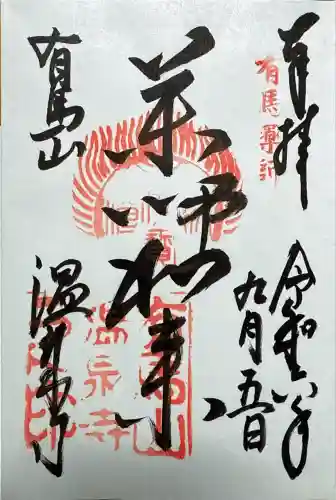 奉拝
令和六年
九月五日
薬師如来
有馬山
温泉寺
有馬山
温泉寺